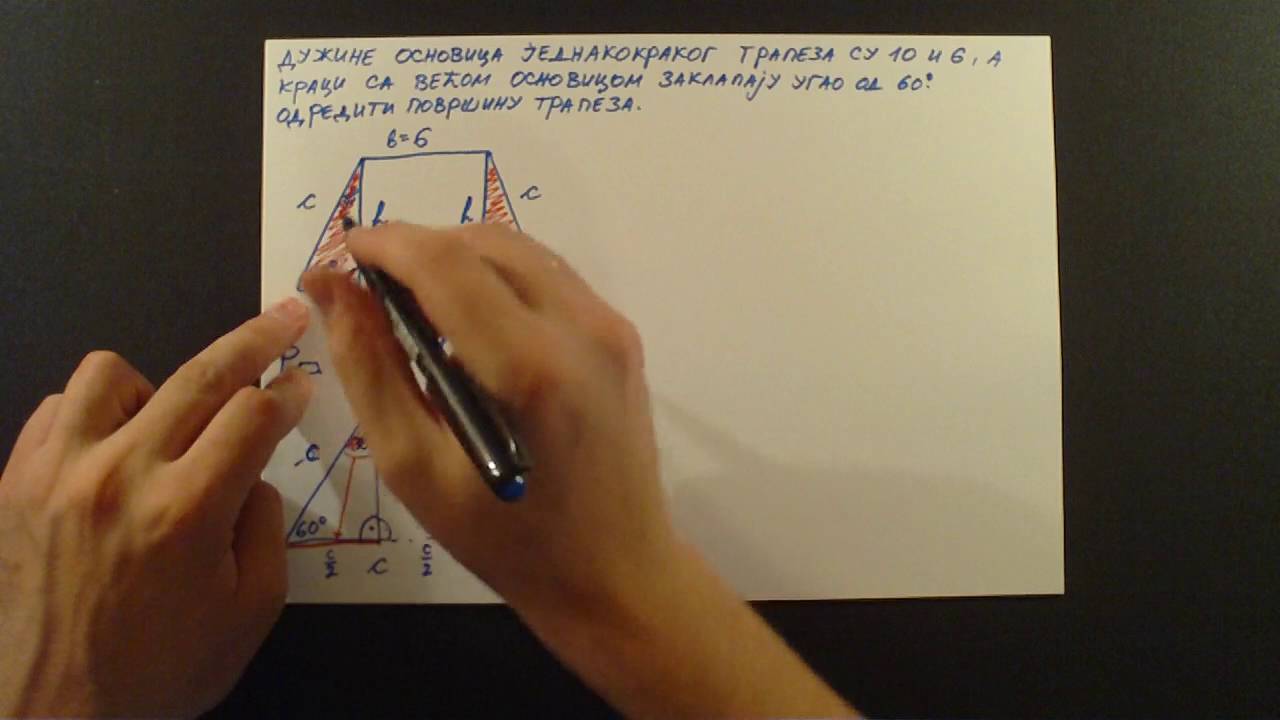 ДУЖИНЕ ОСНОВИЦА ЈЕДНАКОКРАКОГ ТРАПЕЗА СУ 10 И 6, А
КРАЦИ СА ВЕЋОМ ОСНОВИЦОМ ЗАКЛАПАЈУ УГАО ОД 60°.
ОДРЕДИТИ ПОВРШИНУ ТРАПЕЗА.
b=6
c c
h h
P
c
60°
c/2 c c/2